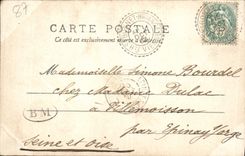 81
CARTE POSTALE
Ce côté est exclusivement réservé à l'adresse
Mademoiselle Simone Bourdel
chez Madame Dulac
à Villemoisson
BM
par Epinay s/orge
Seine et Oise